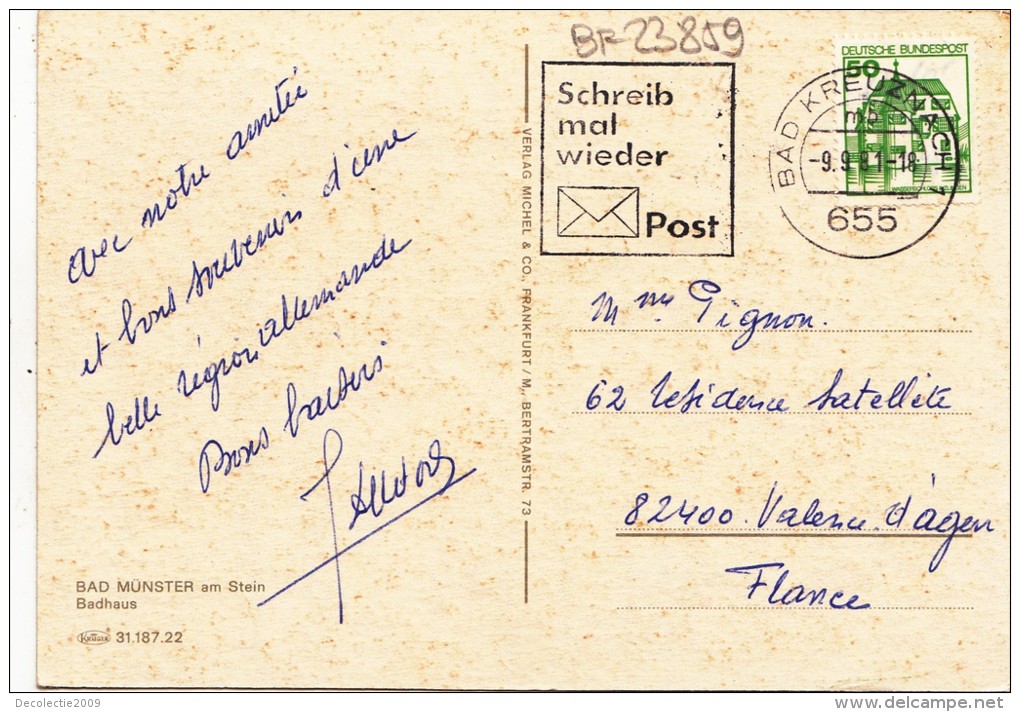 BF-23859
Schreib
mal
wieder
Post
DEUTSCHE BUNDESPOST
50
BAD KREUZNACH 1
mb
-9.9.81-18
655
avec notre amitié
et bons souvenirs d'une
belle région allemande
Bons baisers
VERLAG MICHEL & CO., FRANKFURT/M., BERTRAMSTR. 73
Mme Pignon.
62 Résidence Satellite
82400. Valence. d'agen
France
BAD MÜNSTER am Stein
Badhaus
KRÜGER 31.187.22
Decolectie2009
www.delcampe.net